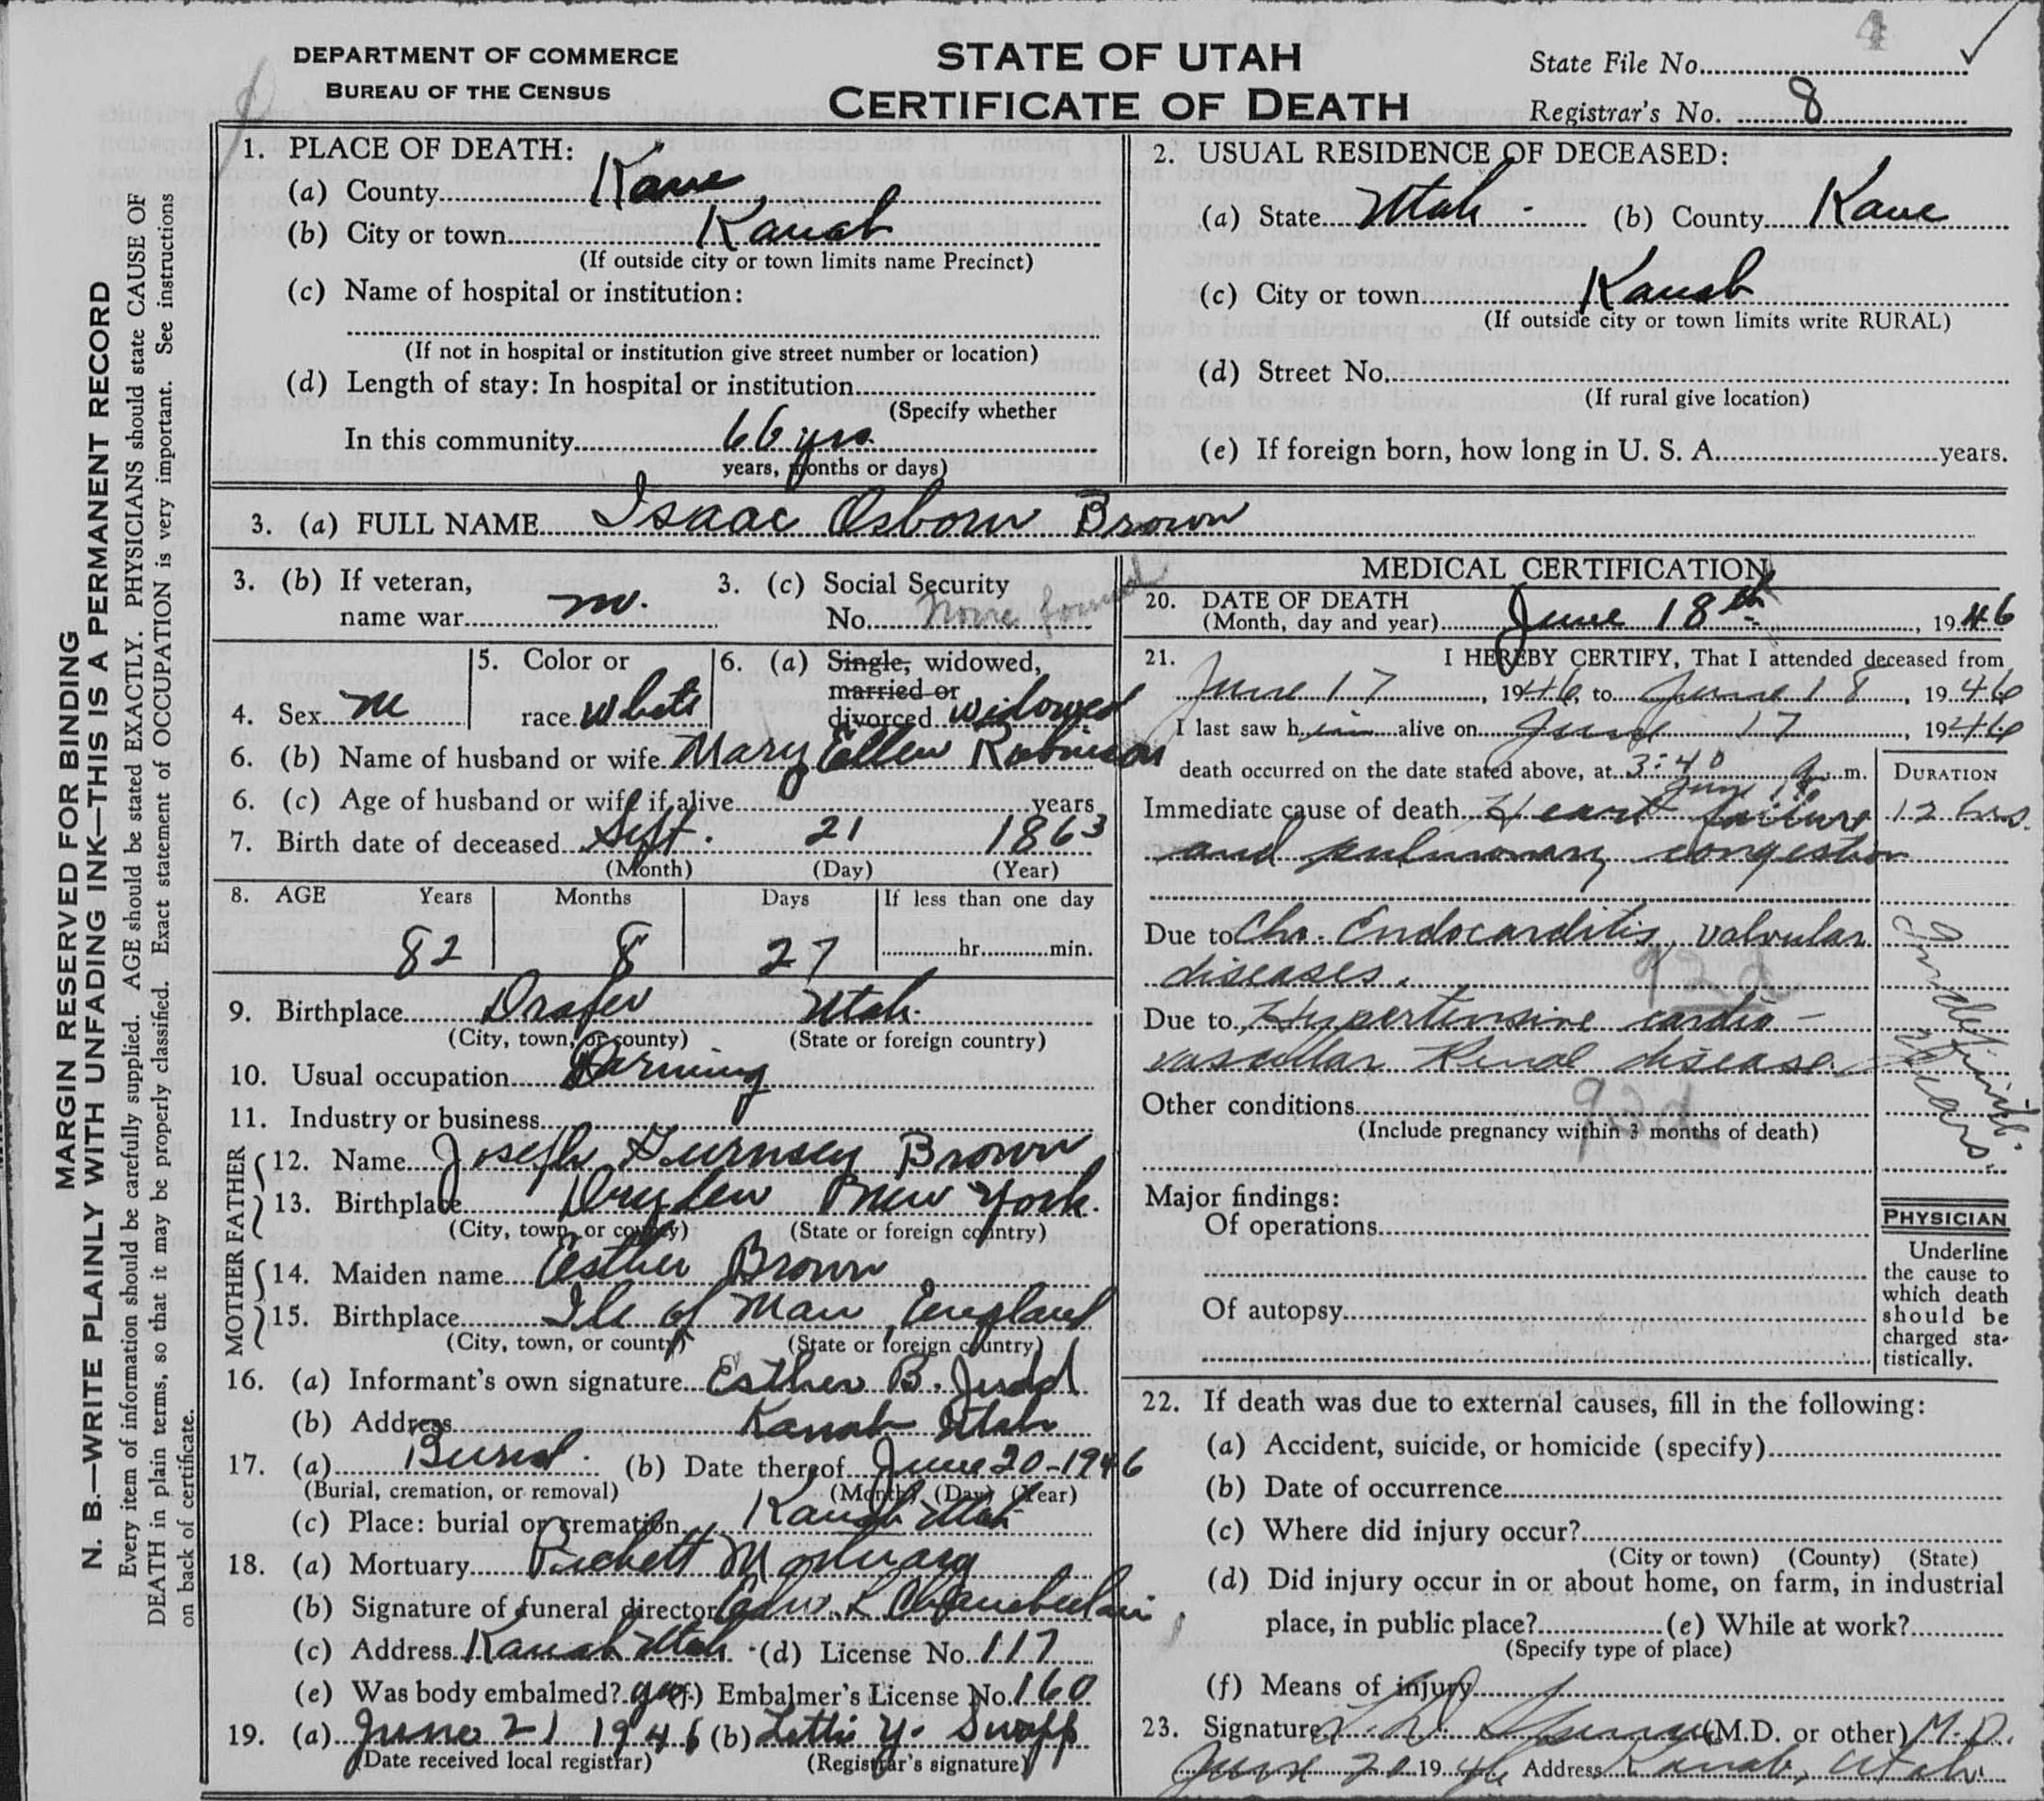 DEPARTMENT OF COMMERCE
BUREAU OF THE CENSUS
STATE OF UTAH
CERTIFICATE OF DEATH
4
State File No.
Registrar's No. 8
MARGIN RESERVED FOR BINDING
N. B.—WRITE PLAINLY WITH UNFADING INK—THIS IS A PERMANENT RECORD
Every item of information should be carefully supplied. AGE should be stated EXACTLY. PHYSICIANS should state CAUSE OF
DEATH in plain terms, so that it may be properly classified. Exact statement of OCCUPATION is very important. See instructions
on back of certificate.
1. PLACE OF DEATH:
(a) County Kane
(b) City or town Kanab
(If outside city or town limits name Precinct)
(c) Name of hospital or institution:
(If not in hospital or institution give street number or location)
(d) Length of stay: In hospital or institution
(Specify whether
In this community 66 yrs.
years, months or days)
2. USUAL RESIDENCE OF DECEASED:
(a) State Utah (b) County Kane
(c) City or town Kanab
(If outside city or town limits write RURAL)
(d) Street No.
(If rural give location)
(e) If foreign born, how long in U. S. A. years.
3. (a) FULL NAME Isaac Osborn Brown
3. (b) If veteran,
name war no.
3. (c) Social Security
No. None found
4. Sex m
5. Color or
race white
6. (a) Single, widowed,
married or
divorced widowed
6. (b) Name of husband or wife Mary Ellen Robinson
6. (c) Age of husband or wife if alive years
7. Birth date of deceased Sept. 21 1863
(Month) (Day) (Year)
8. AGE Years Months Days If less than one day
82 8 27 hr. min.
9. Birthplace Draper Utah.
(City, town, or county) (State or foreign country)
10. Usual occupation Farming
11. Industry or business
FATHER
12. Name Joseph Gurnsey Brown
13. Birthplace Dryden New York.
(City, town, or county) (State or foreign country)
MOTHER
14. Maiden name Esther Brown
15. Birthplace Ile of Man England
(City, town, or county) (State or foreign country)
16. (a) Informant's own signature Esther B. Judd
(b) Address Kanab Utah
17. (a) Burial. (b) Date thereof June 20-1946
(Burial, cremation, or removal) (Month) (Day) (Year)
(c) Place: burial or cremation Kanab Utah
18. (a) Mortuary Mortuary
(b) Signature of funeral director Chamberlain
(c) Address Kanab Utah. (d) License No. 117
(e) Was body embalmed? yes (f) Embalmer's License No. 160
19. (a) June 21 1946 (b) Lettie Y. Swapp
(Date received local registrar) (Registrar's signature)
MEDICAL CERTIFICATION
20. DATE OF DEATH
(Month, day and year) June 18th, 1946
21. I HEREBY CERTIFY, That I attended deceased from
June 17, 1946, to June 18, 1946
I last saw him alive on June 17, 1946
death occurred on the date stated above, at 3:40 a. m.
June 18
DURATION
Immediate cause of death Heart failure 12 hrs.
and pulmonary congestion
Due to Chr. Endocarditis, valvular
diseases. 92d
Due to Hypertensive cardio-
vascular Renal disease
Indefinite
years.
Other conditions 93d
(Include pregnancy within 3 months of death)
Major findings:
Of operations
Of autopsy
PHYSICIAN
Underline
the cause to
which death
should be
charged sta-
tistically.
22. If death was due to external causes, fill in the following:
(a) Accident, suicide, or homicide (specify)
(b) Date of occurrence
(c) Where did injury occur?
(City or town) (County) (State)
(d) Did injury occur in or about home, on farm, in industrial
place, in public place? (e) While at work?
(Specify type of place)
(f) Means of injury
23. Signature (M.D. or other) M.D.
June 20 1946 Address Kanab, Utah.